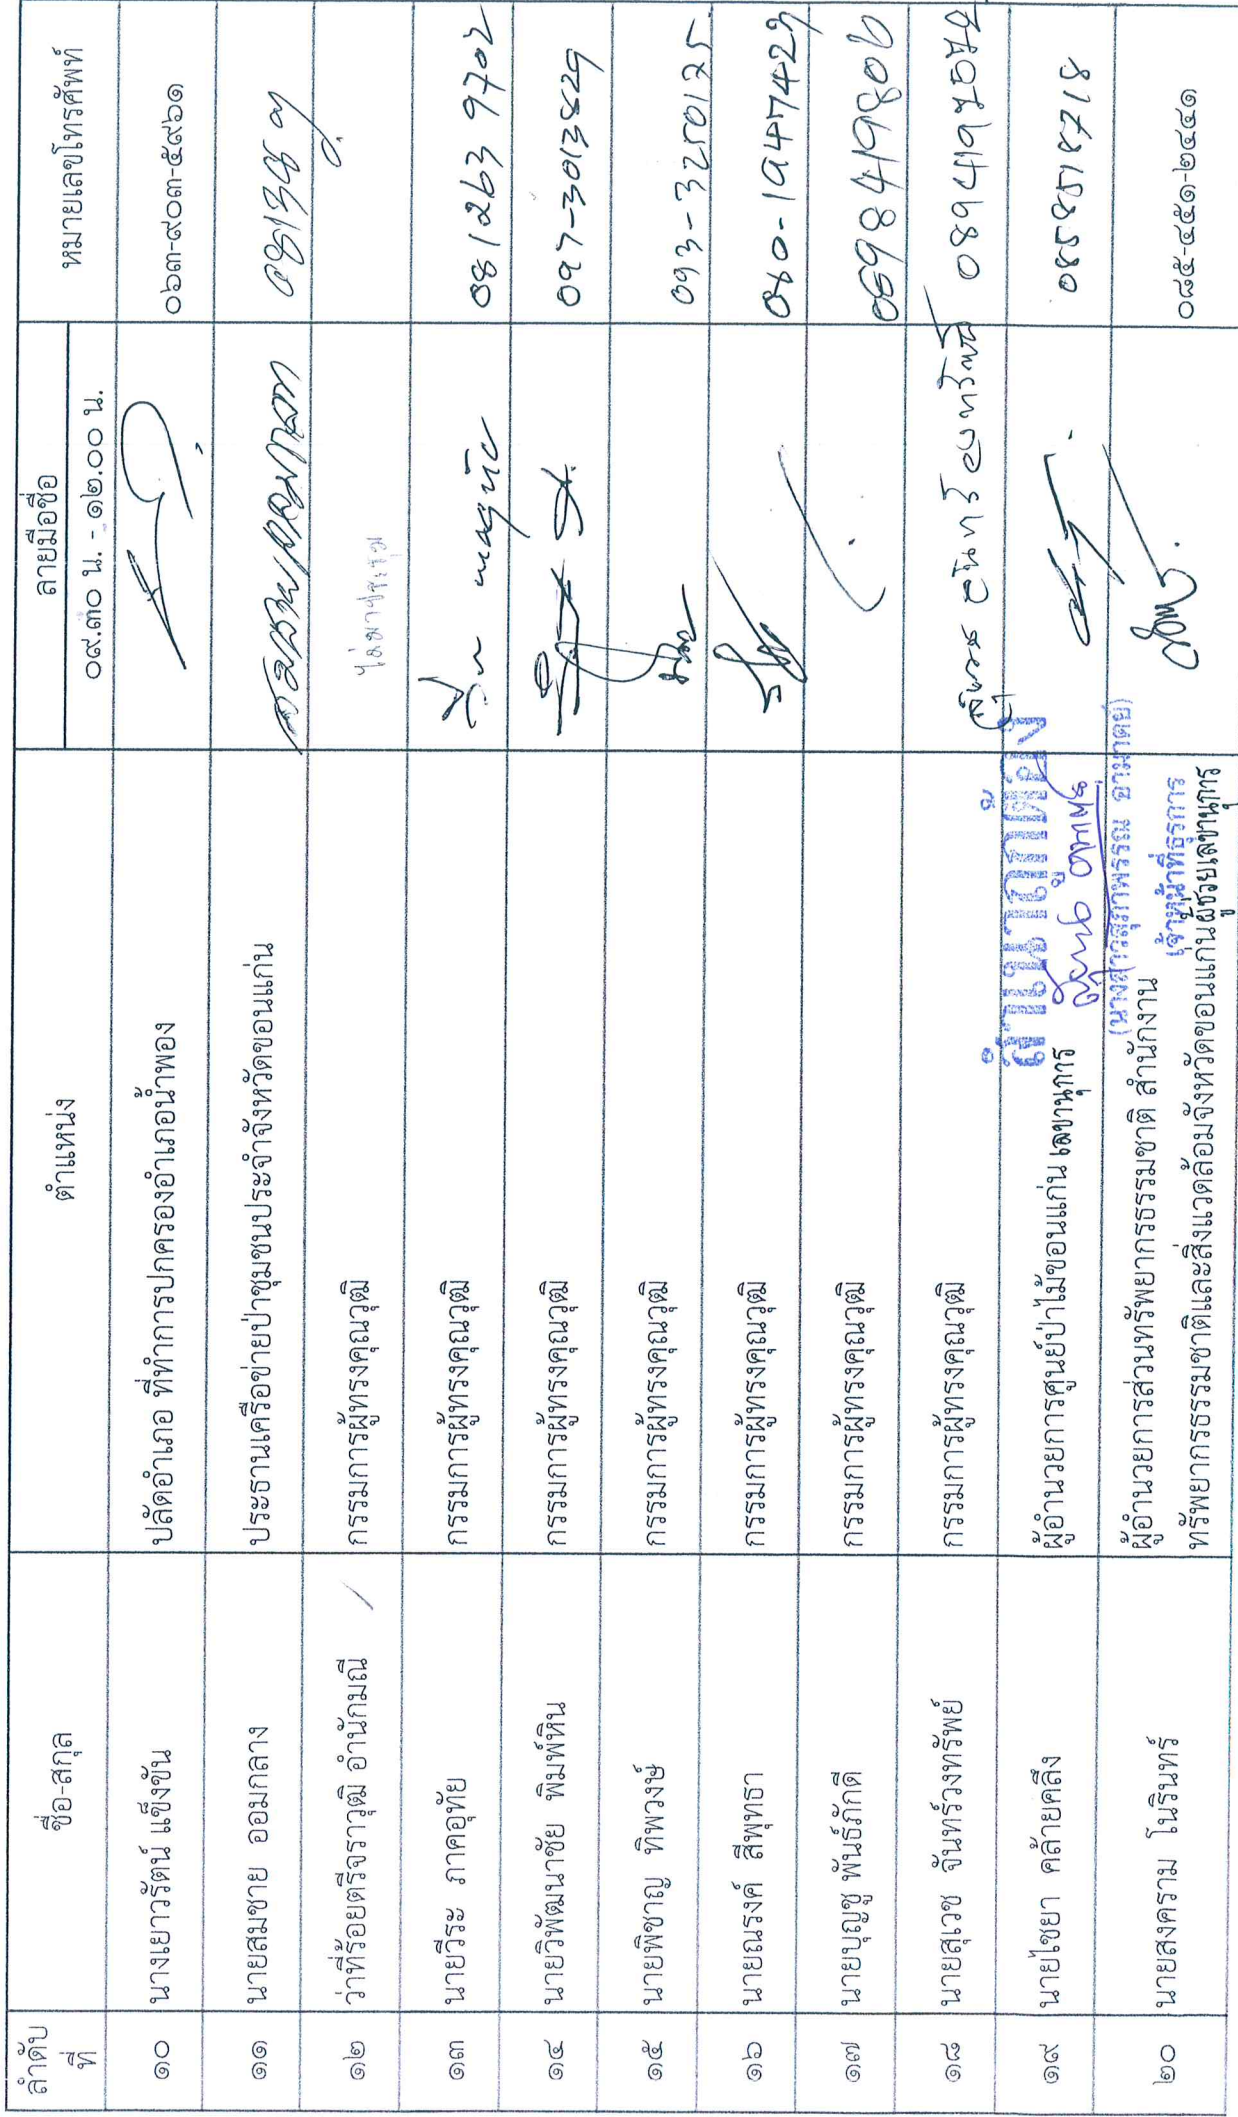 ลำดับที่ ชื่อ-สกุล ตำแหน่ง ลายมือชื่อ หมายเลขโทรศัพท์
๐๙.๓๐ น. - ๑๒.๐๐ น.
๑๐ นางเยาวรัตน์ แข็งขัน ปลัดอำเภอ ที่ทำการปกครองอำเภอน้ำพอง ๐๖๓-๙๐๓-๕๙๖๑
๑๑ นายสมชาย ออมกลาง ประธานเครือข่ายป่าชุมชนประจำจังหวัดขอนแก่น
๑๒ ว่าที่ร้อยตรีจราวุฒิ อำนักมณี กรรมการผู้ทรงคุณวุฒิ ไม่มาประชุม
๑๓ นายวีระ ภาคอุทัย กรรมการผู้ทรงคุณวุฒิ 081 263 9702
๑๔ นายวิพัฒนาชัย พิมพ์หิน กรรมการผู้ทรงคุณวุฒิ 097-3013829
๑๕ นายพิชาญ ทิพวงษ์ กรรมการผู้ทรงคุณวุฒิ 093-3250125
๑๖ นายณรงค์ สีพุทธา กรรมการผู้ทรงคุณวุฒิ
๑๗ นายบุญชู พันธ์ภักดี กรรมการผู้ทรงคุณวุฒิ
๑๘ นายสุเวช จันทร์วงทรัพย์ กรรมการผู้ทรงคุณวุฒิ
๑๙ นายไชยา คล้ายคลึง ผู้อำนวยการศูนย์ป่าไม้ขอนแก่น เลขานุการ
๒๐ นายสงคราม โนรินทร์ ผู้อำนวยการส่วนทรัพยากรธรรมชาติ สำนักงาน
ทรัพยากรธรรมชาติและสิ่งแวดล้อมจังหวัดขอนแก่นผู้ช่วยเลขานุการ ๐๘๕-๔๕๑-๒๔๔๑
สำเนาถูกต้อง
(นางสาวสุภาพรรณ อามาตย์)
เจ้าหน้าที่ธุรการ